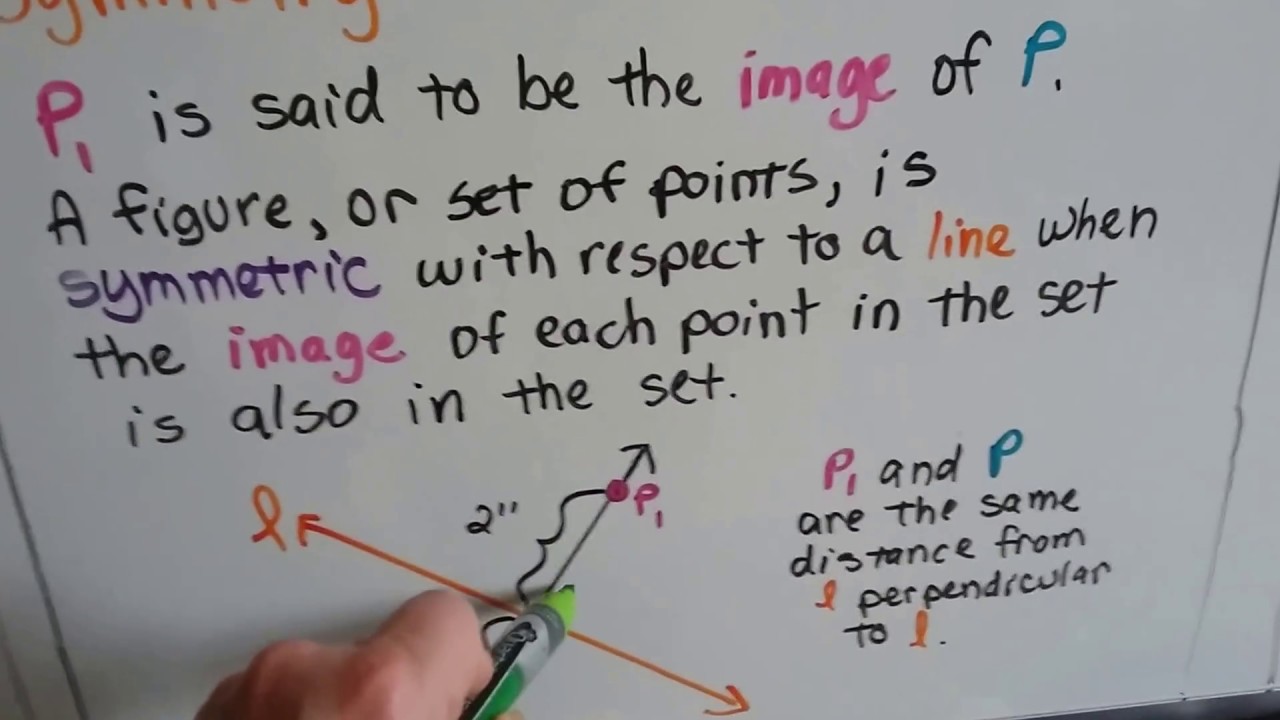 Symmetry
P₁ is said to be the image of P.
A figure, or set of points, is
symmetric with respect to a line when
the image of each point in the set
is also in the set.
l
2"
P₁
P₁ and P
are the same
distance from
l perpendicular
to l.